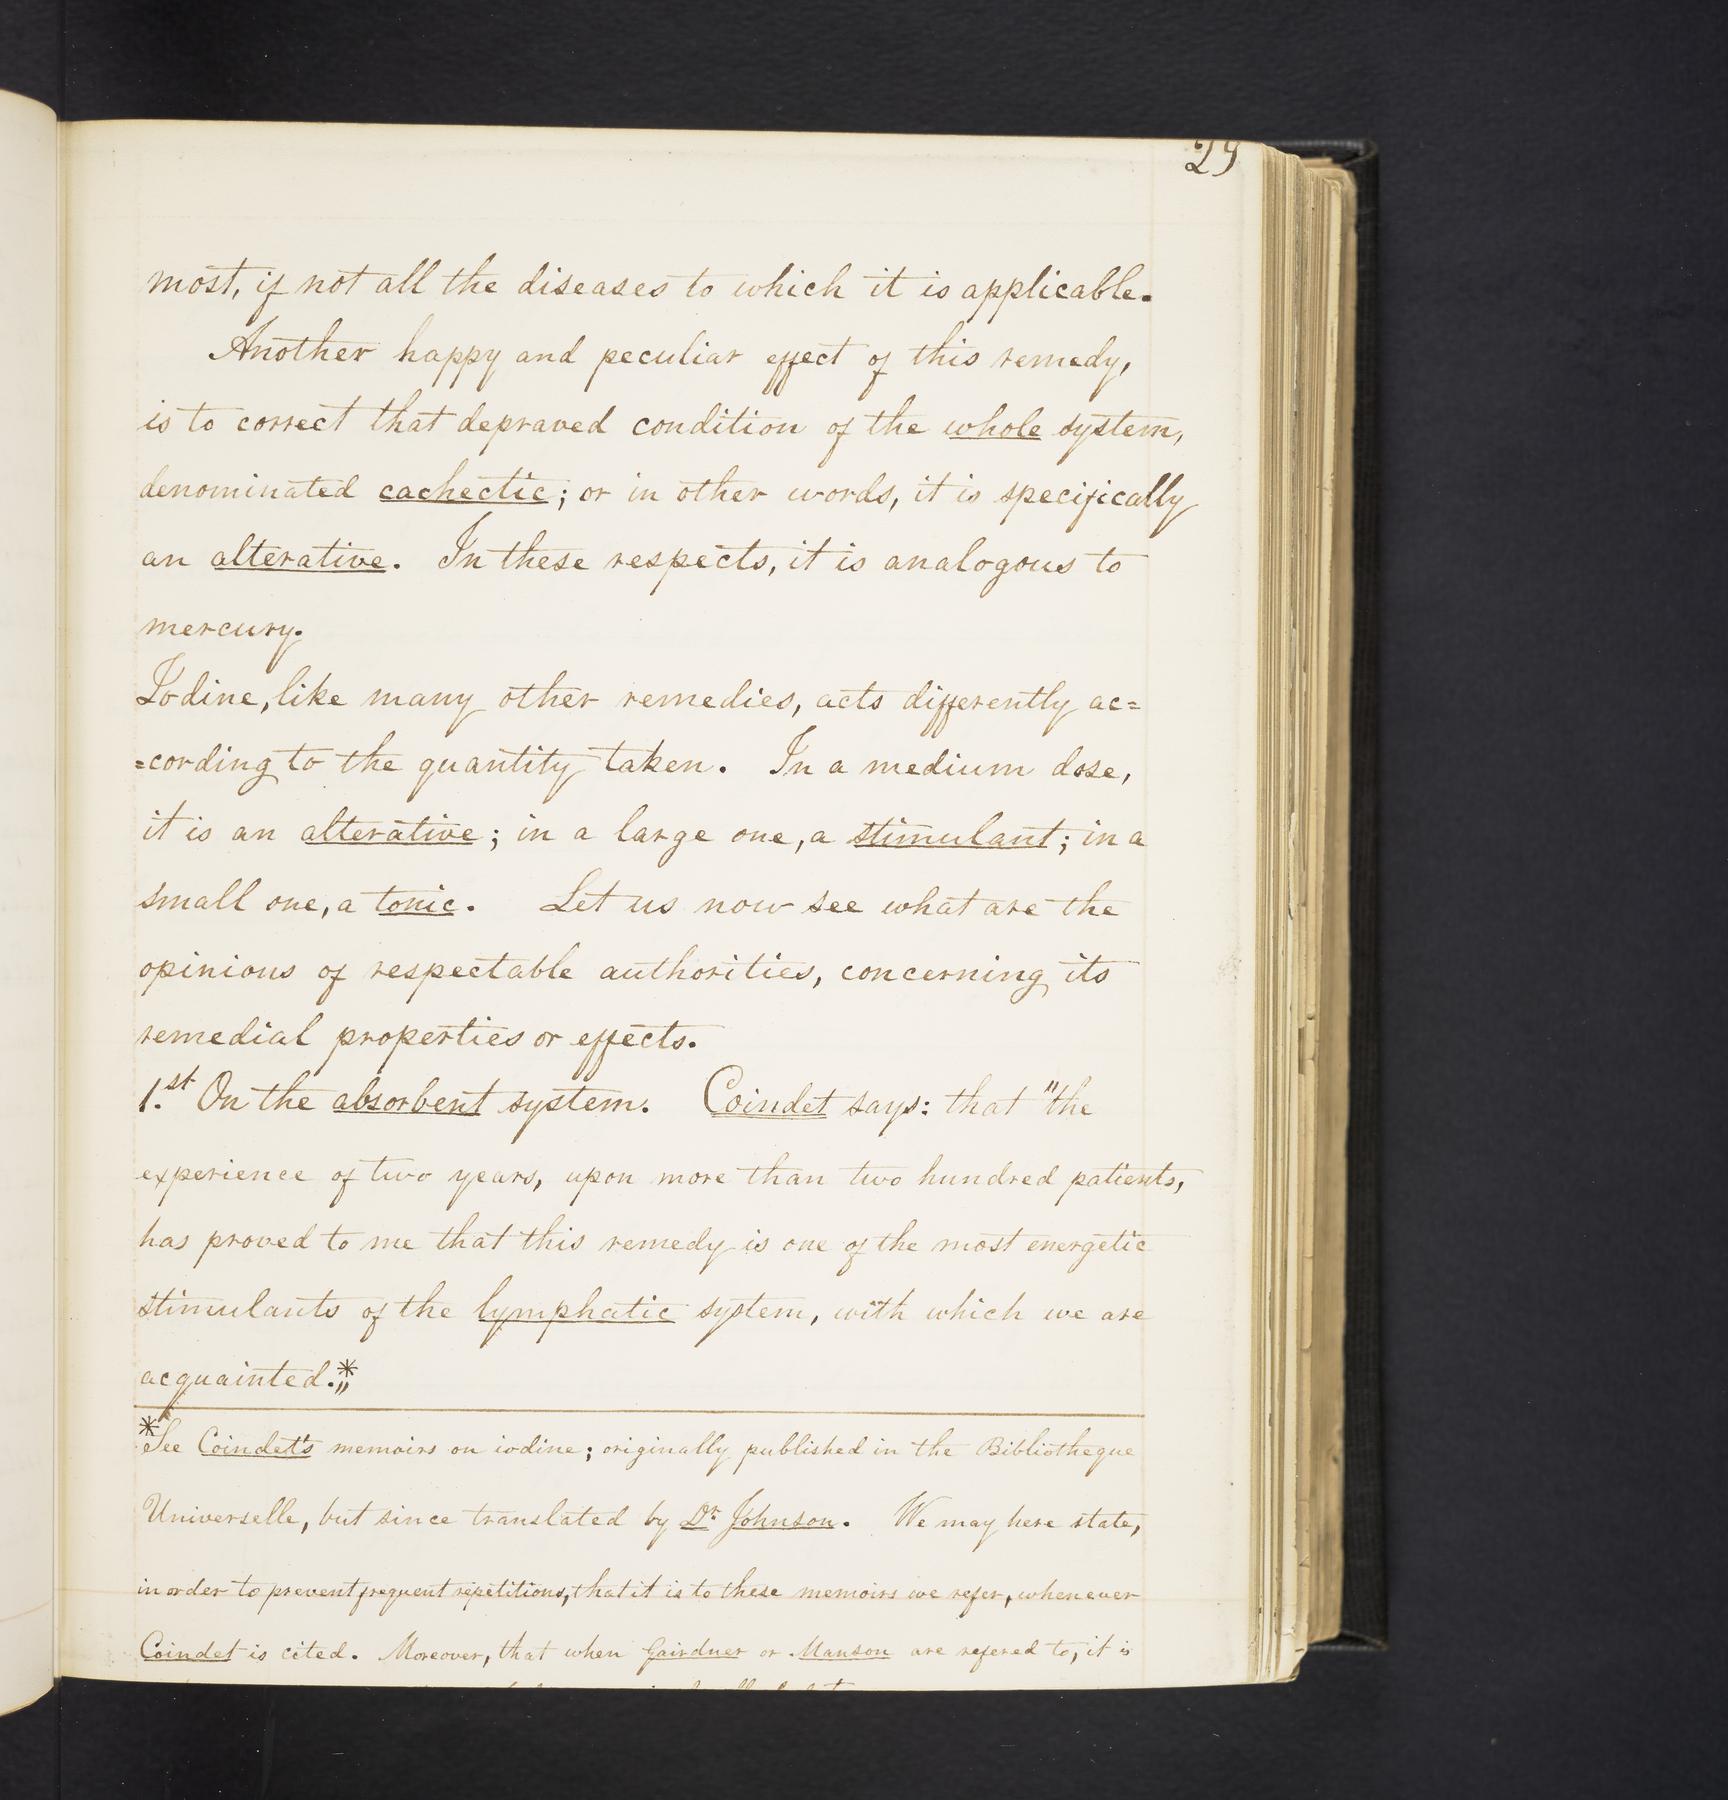 29
most, if not all the diseases to which it is applicable.
Another happy and peculiar effect of this remedy,
is to correct that depraved condition of the whole system,
denominated cachectic; or in other words, it is specifically
an alterative. In these respects, it is analogous to
mercury.
Iodine, like many other remedies, acts differently ac=
=cording to the quantity taken. In a medium dose,
it is an alterative; in a large one, a stimulant; in a
small one, a tonic. Let us now see what are the
opinions of respectable authorities, concerning its
remedial properties or effects.
1.st On the absorbent system. Coindet says: that "the
experience of two years, upon more than two hundred patients,
has proved to me that this remedy is one of the most energetic
stimulants of the lymphatic system, with which we are
acquainted.*"
*See Coindet's memoirs on iodine; originally published in the Bibliotheque
Universelle, but since translated by Dr. Johnson. We may here state,
in order to prevent frequent repetitions, that it is to these memoirs we refer, whenever
Coindet is cited. Moreover, that when Gairdner or Manson are refered to, it is